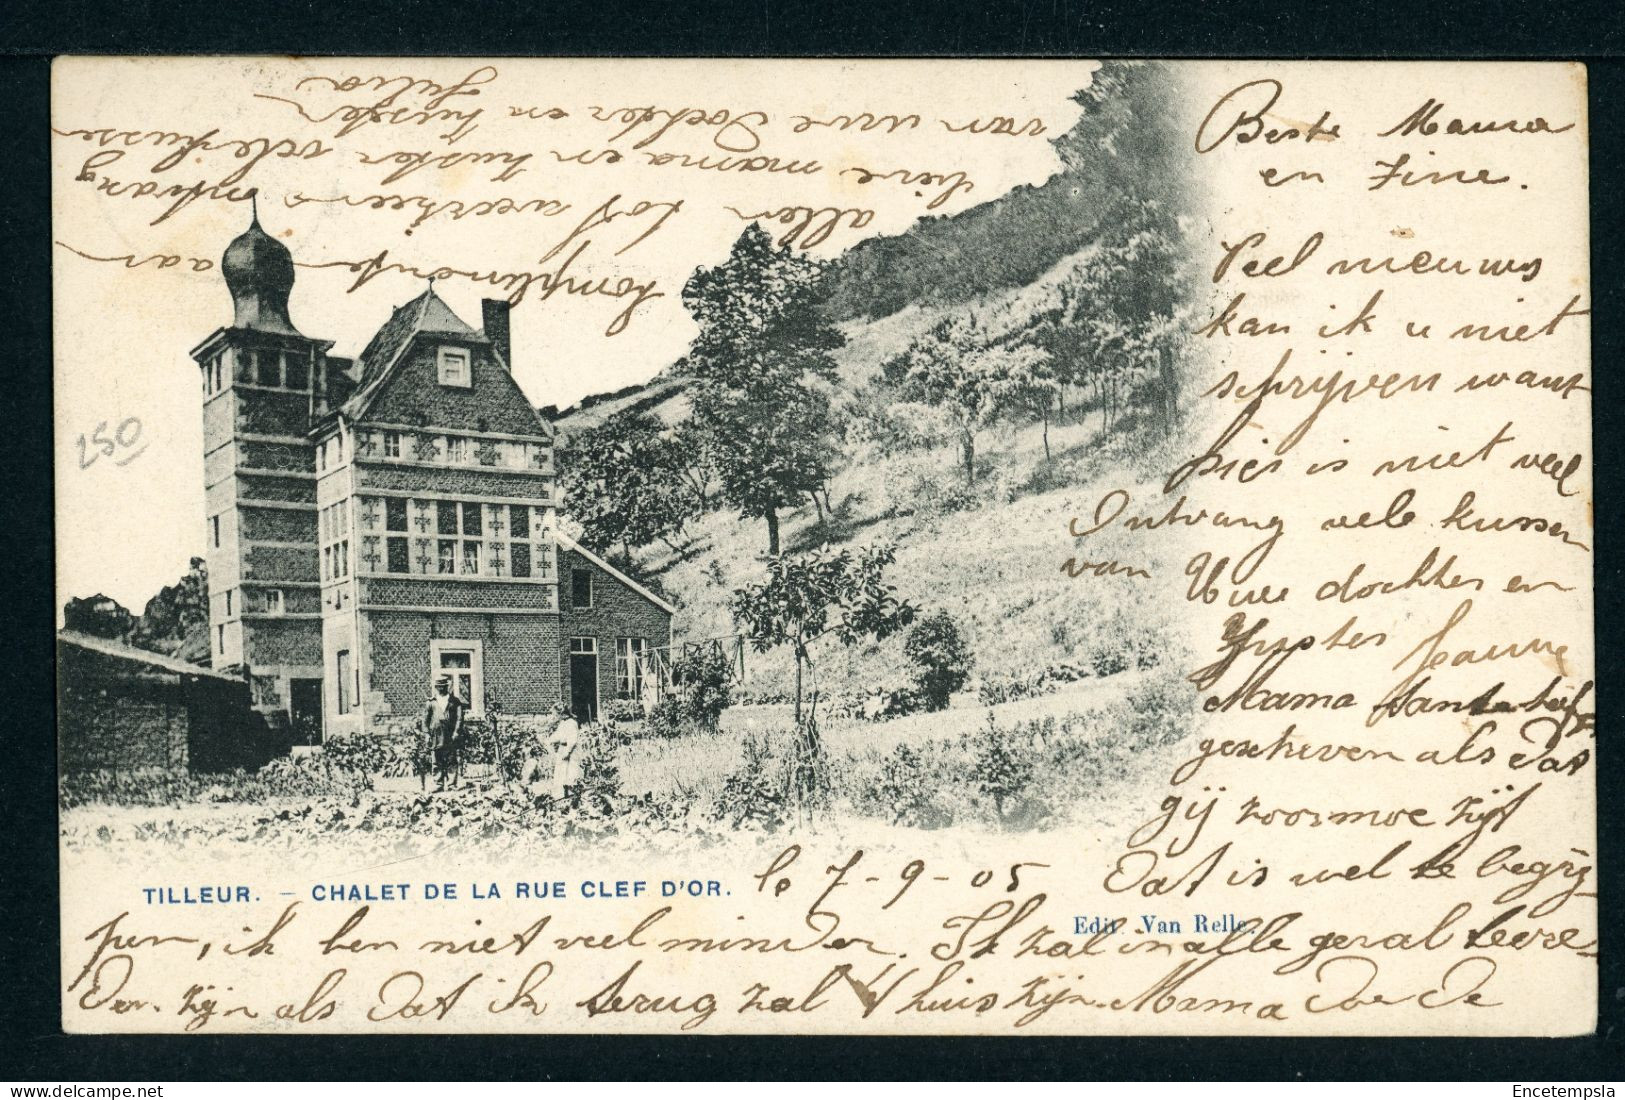 Beste Mama
en Fine.
Veel nieuws
kan ik u niet
schrijven want
hier is niet veel
Ontvang vele kussen
van Uwe dochter en
Zuster Jeanne
Mama tante heeft
gescheven als dat
gij zoo moe zijt
le 7-9-05 Dat is wel te begrij-
pen, ik ben niet veel minder. Ik zal in alle geval tevre-
den zijn als dat ik terug zal t'huis zijn. Mama doe de
komplimenten aan
allen tot weerziens ontvang
lieve mama en zuster vele kusse
van uwe dochter en zuster
Julia
250
TILLEUR. — CHALET DE LA RUE CLEF D'OR.
Edit. Van Relle.
Encetempsla